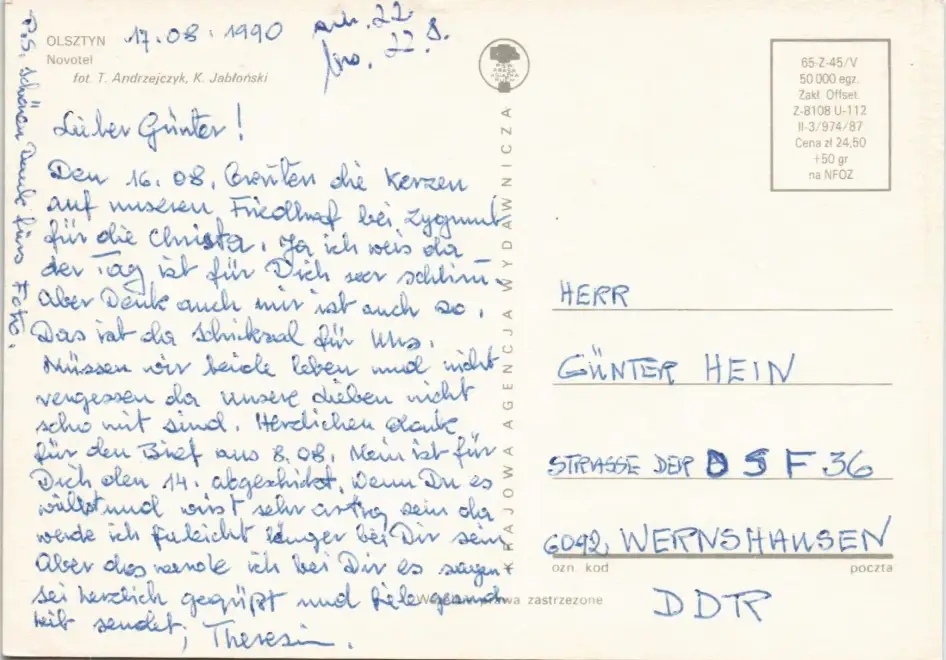 OLSZTYN 17.08.1990
Novotel
fot. T. Andrzejczyk, K. Jabłoński
22.
22.8.
Lieber Günter!
Den 16.08. die Kerzen
auf unseren Friedhof bei Zygmunt
für die Christa. Ja ich weis da
der Tag ist für Dich ser schlim.
Aber Denk auch mir ist auch so.
Das ist da Schicksal für Uns.
Müssen wir beide leben und nicht
vergessen da unsere lieben nicht
mit sind. Herzlichen dank
für den Brief aus 8.08. Mein ist für
Dich den 14. abgeschikt. Wenn Du es
und wirst sehr artig sein da
werde ich länger bei Dir sein
Aber das werde ich bei Dir es sagen
Sei herzlich gegrüßt und
sendet, Theresia.
P.S. Schönen Dank fürs Foto.
KRAJOWA AGENCJA WYDAWNICZA
zastrzeżone
65-Z-45/V
50 000 egz.
Zakł. Offset.
Z-8108 U-112
II-3/974/87
Cena zł 24,50
+50 gr
na NFOZ
HERR
GÜNTER HEIN
STRASSE DER DSF 36
6092, WERNSHAUSEN
ozn. kod poczta
DDR